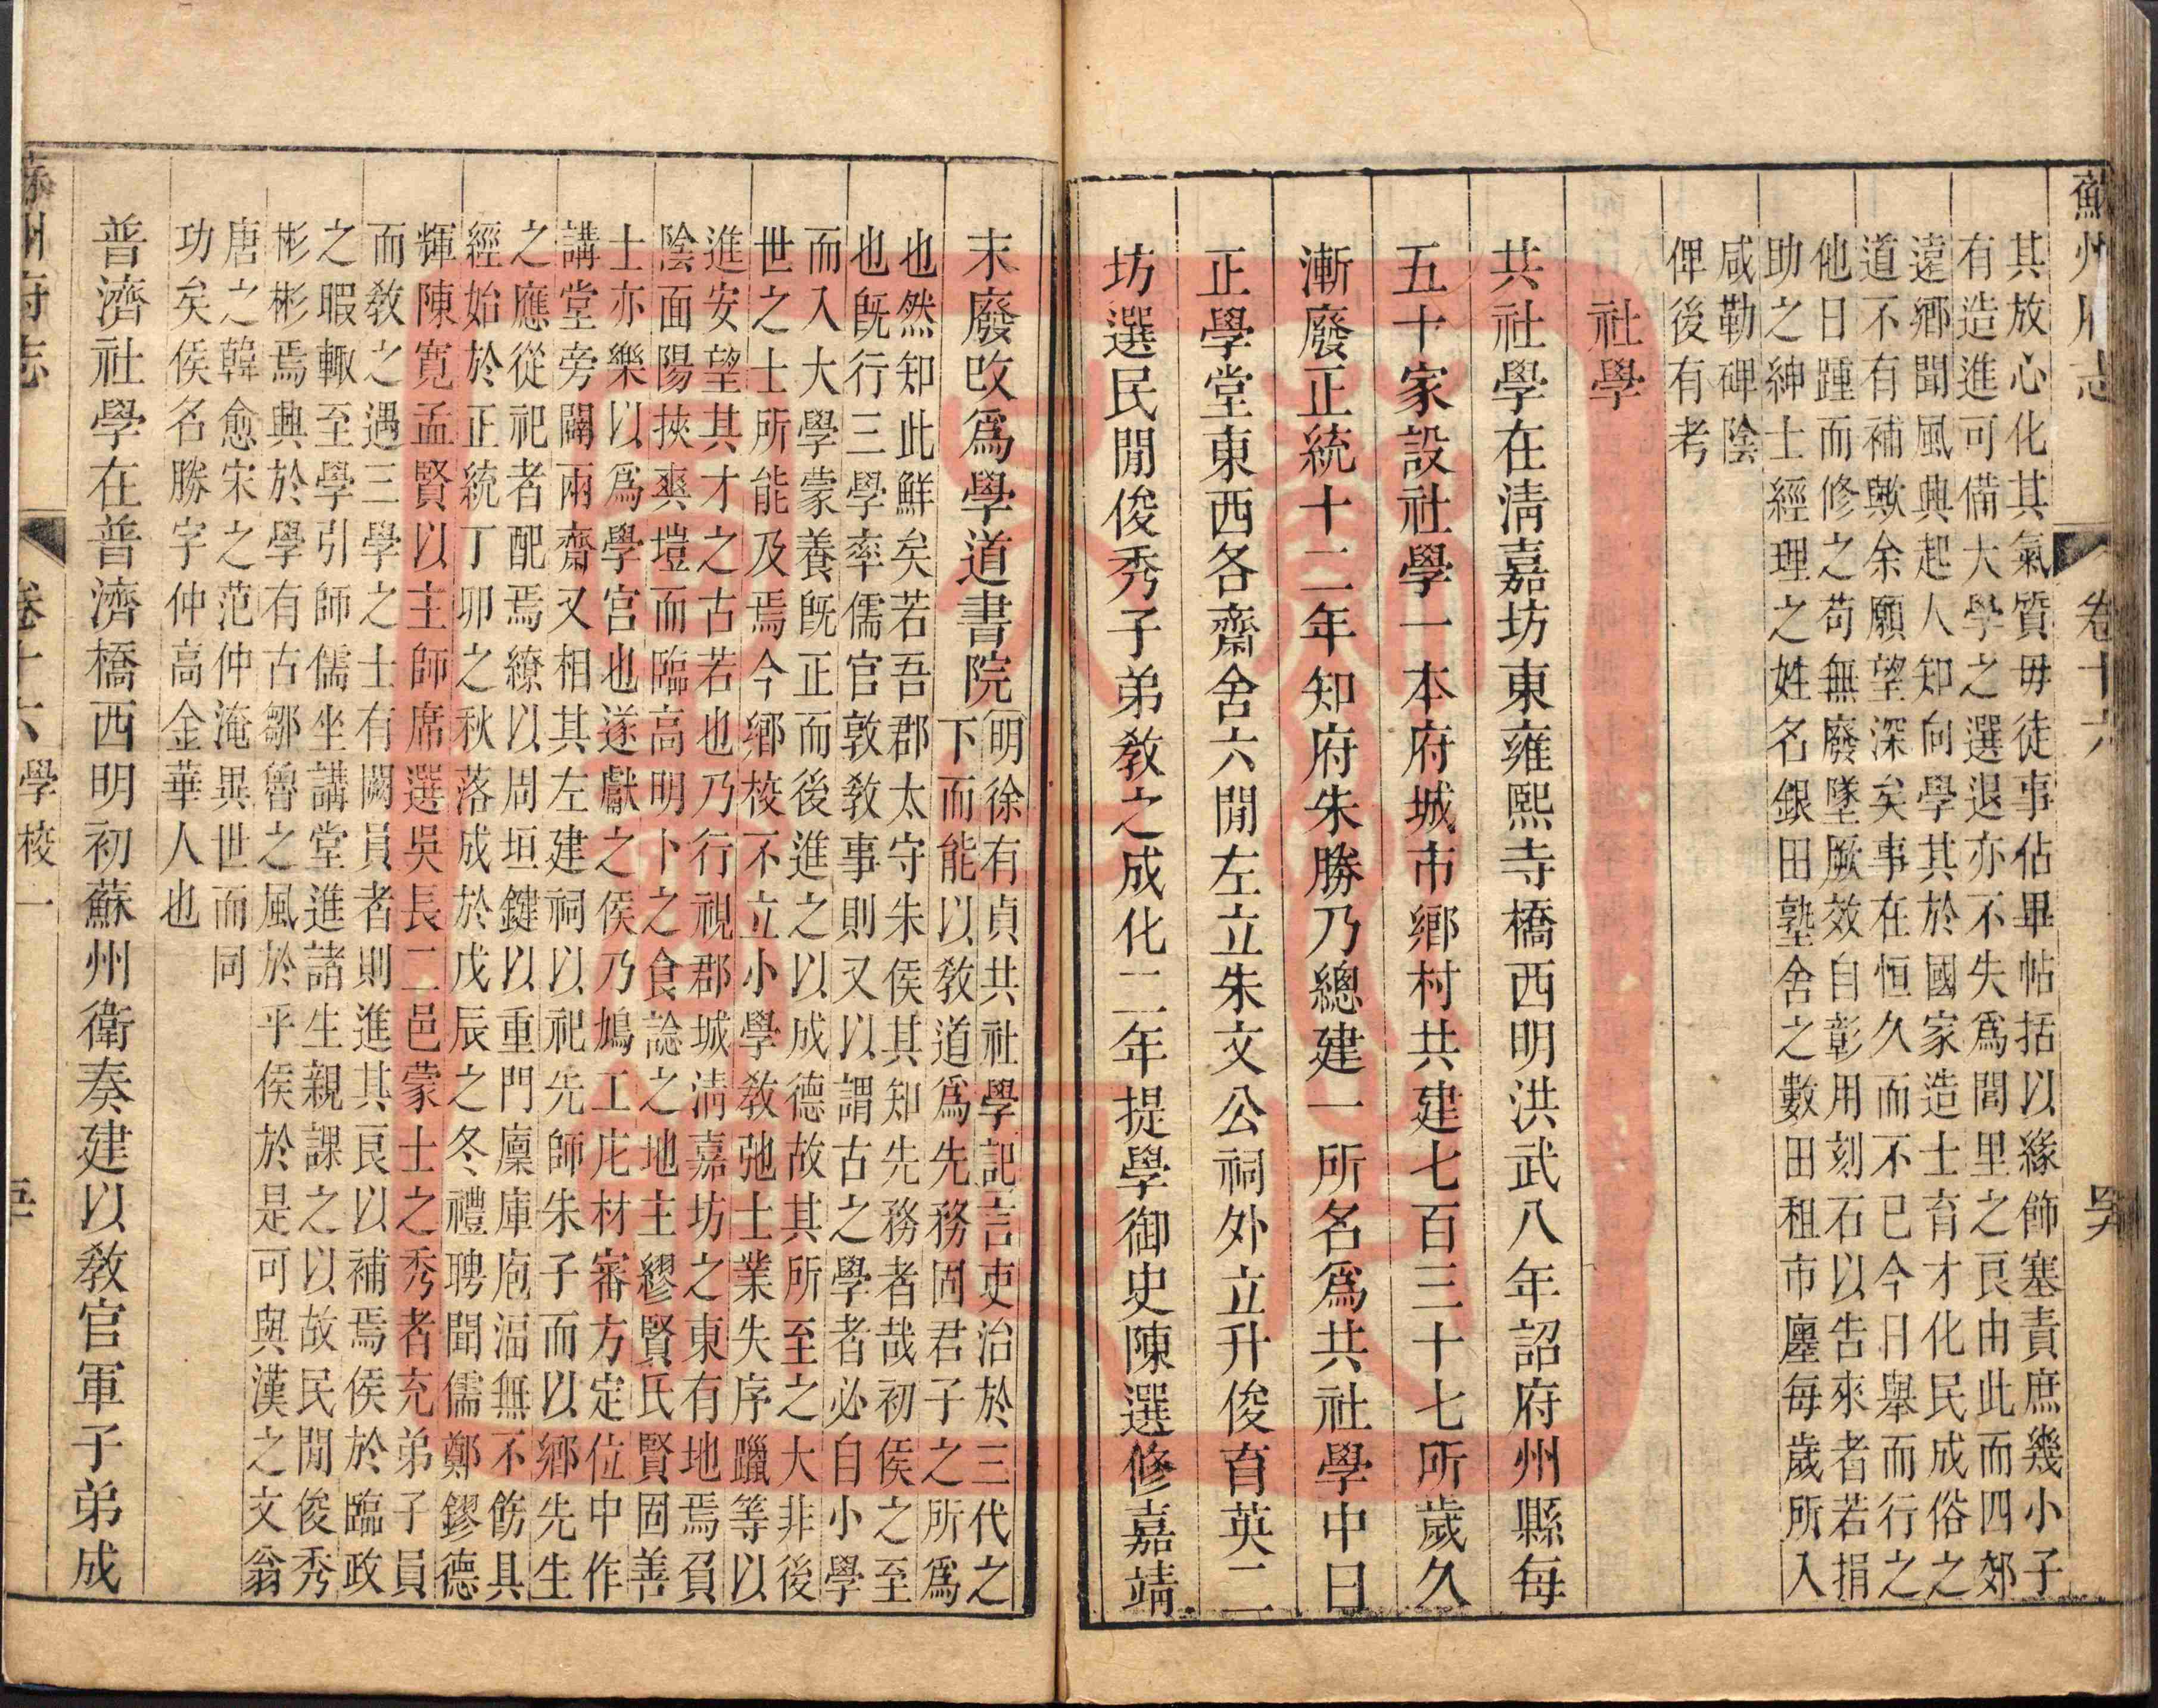 蘇州府志 卷十六
其放心化其氣質毋徒事佔畢帖括以緣飾塞責庶幾小子
有造進可備大學之選退亦不失爲閭里之良由此而四郊
遠鄉聞風興起人知向學其於國家造士育才化民成俗之
道不有補歟余願望深矣事在恒久而不已今日舉而行之
他日踵而修之苟無廢墜厥效自彰用刻石以告來者若捐
助之紳士經理之姓名銀田塾舍之數田租市廛每歲所入
咸勒碑陰
俾後有考
社學
共社學在淸嘉坊東雍熙寺橋西明洪武八年詔府州縣每
五十家設社學一本府城市鄉村共建七百三十七所歲久
漸廢正統十二年知府朱勝乃總建一所名爲共社學中曰
正學堂東西各齋舍六閒左立朱文公祠外立升俊育英二
坊選民閒俊秀子弟敎之成化二年提學御史陳選修嘉靖
末廢改爲學道書院
明徐有貞共社學記言吏治於三代之
下而能以敎道爲先務固君子之所爲
也然知此鮮矣若吾郡太守朱侯其知先務者哉初侯之至
也旣行三學率儒官敦敎事則又以謂古之學者必自小學
而入大學蒙養旣正而後進之以成德故其所至之大非後
世之士所能及焉今鄉校不立小學敎弛士業失序躐等以
進安望其才之古若也乃行視郡城淸嘉坊之東有地焉負
陰面陽挾爽塏而臨高明卜之食諗之地主繆賢氏賢固善
士亦樂以爲學宮也遂獻之侯乃鳩工庀材審方定位中作
講堂旁闢兩齋又相其左建祠以祀先師朱子而以鄉先生
之應從祀者配焉繚以周垣鍵以重門廩庫庖湢無不飭具
經始於正統丁卯之秋落成於戊辰之冬禮聘聞儒鄭鏐德
輝陳寛孟賢以主師席選吳長二邑蒙士之秀者充弟子員
而敎之遇三學之士有闕員者則進其良以補焉侯於臨政
之暇輒至學引師儒坐講堂進諸生親課之以故民閒俊秀
彬彬焉興於學有古鄒魯之風於乎侯於是可與漢之文翁
唐之韓愈宋之范仲淹異世而同
功矣侯名勝字仲高金華人也
普濟社學在普濟橋西明初蘇州衛奏建以敎官軍子弟成
州府志 卷十六 學校一